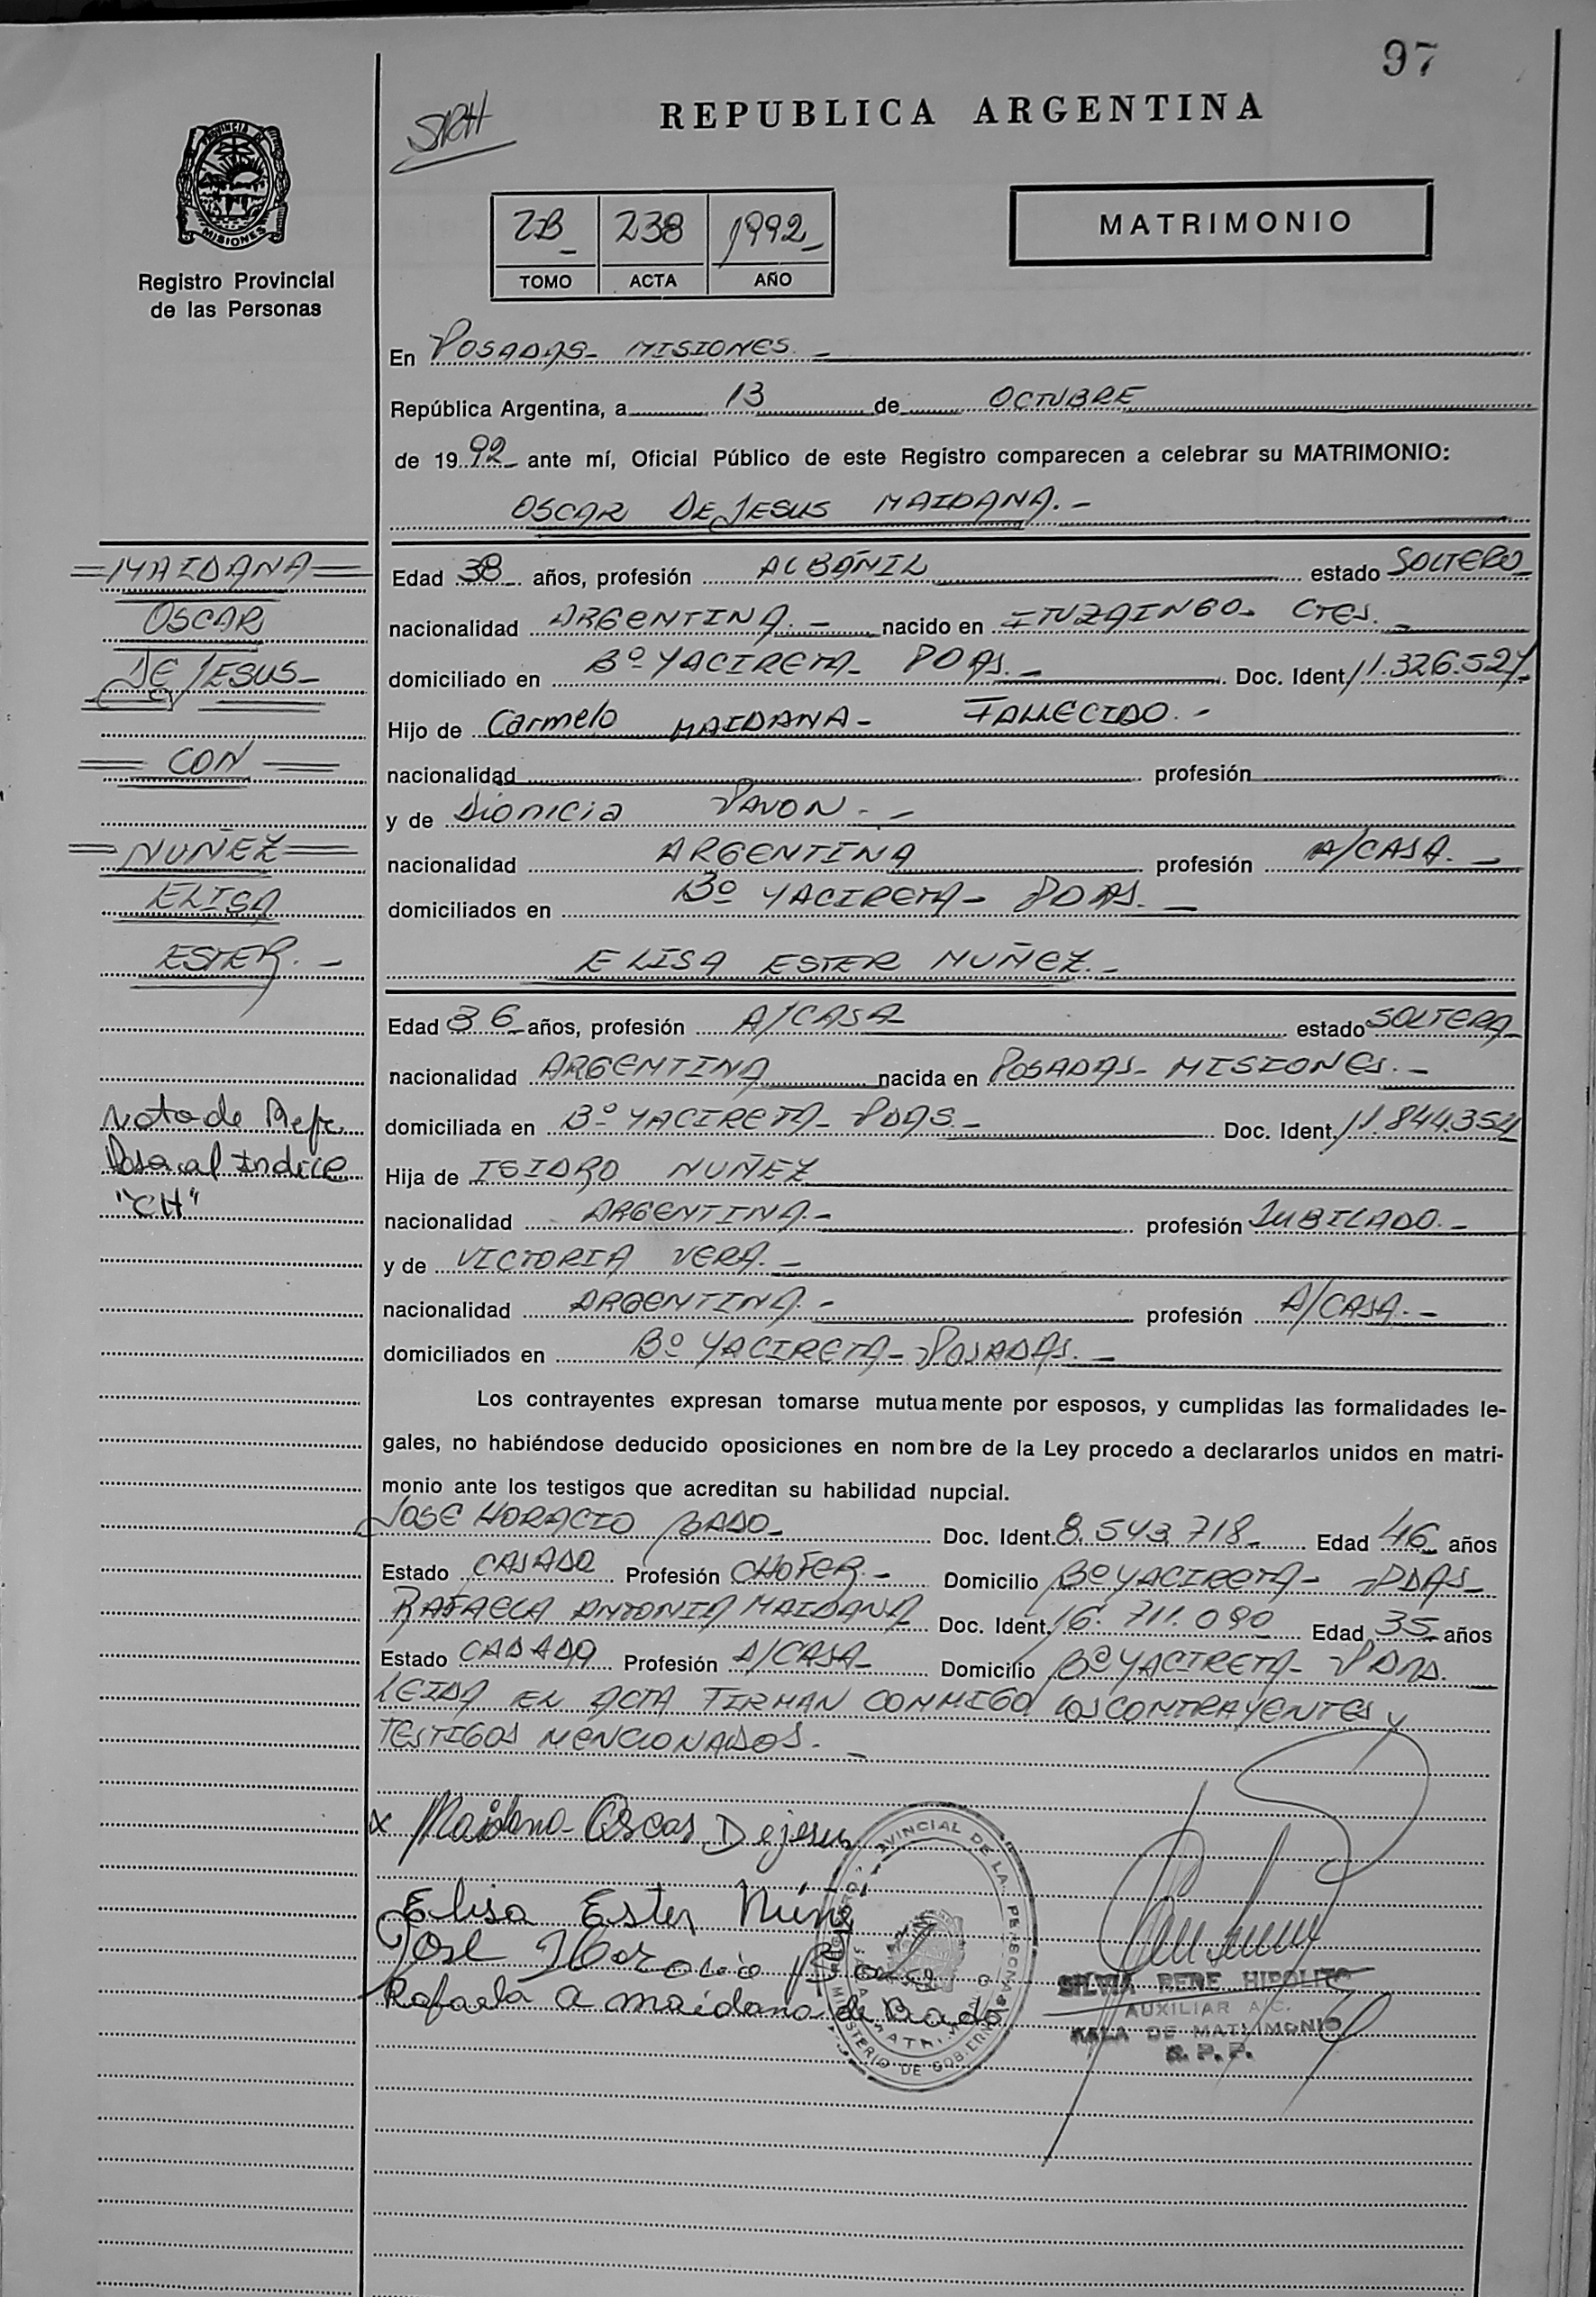 97
SRH
REPUBLICA ARGENTINA
PROVINCIA DE
MISIONES
Registro Provincial
de las Personas
2B 238 1992
TOMO ACTA AÑO
MATRIMONIO
En POSADAS - MISIONES. -
República Argentina, a 13 de OCTUBRE
de 1992 ante mí, Oficial Público de este Registro comparecen a celebrar su MATRIMONIO:
OSCAR DE JESUS MAIDANA. -
MAIDANA
OSCAR
DE JESUS -
CON
NUÑEZ
ELISA
ESTER. -
Nota de Refe
Pasa al Indice
"CH"
Edad 38 años, profesión ALBAÑIL estado SOLTERO
nacionalidad ARGENTINA. - nacido en ITUZAINGO - CTES. -
domiciliado en Bº YACIRETA - PDAS. - Doc. Ident. 11.326.527
Hijo de Carmelo MAIDANA - FALLECIDO. -
nacionalidad profesión
y de Dionicia PAVON. -
nacionalidad ARGENTINA profesión A/CASA. -
domiciliados en Bº YACIRETA - PDAS. -
ELISA ESTER NUÑEZ. -
Edad 36 años, profesión A/CASA estado SOLTERA
nacionalidad ARGENTINA nacida en POSADAS - MISIONES. -
domiciliada en Bº YACIRETA - PDAS. - Doc. Ident. 11.844.354
Hija de ISIDRO NUÑEZ
nacionalidad ARGENTINA. - profesión JUBILADO. -
y de VICTORIA VERA. -
nacionalidad ARGENTINA. - profesión A/CASA. -
domiciliados en Bº YACIRETA - POSADAS. -
Los contrayentes expresan tomarse mutuamente por esposos, y cumplidas las formalidades le-
gales, no habiéndose deducido oposiciones en nombre de la Ley procedo a declararlos unidos en matri-
monio ante los testigos que acreditan su habilidad nupcial.
JOSE HORACIO BADO - Doc. Ident. 8.543.718 - Edad 46 años
Estado CASADO Profesión CHOFER. - Domicilio Bº YACIRETA - PDAS -
RAFAELA ANTONIA MAIDANA Doc. Ident. 16.711.090 Edad 35 años
Estado CASADA Profesión A/CASA - Domicilio Bº YACIRETA - PDAS.
LEIDA EL ACTA FIRMAN CONMIGO LOS CONTRAYENTES Y
TESTIGOS MENCIONADOS. -
x Maidana Oscar Dejesus
Elisa Ester Núñez
Jose Horacio Bado
Rafaela A maidana de Bado
PROVINCIAL DE LA PERSONAS
MINISTERIO DE GOBIERNO
SILVIA RENE HIPOLITO
AUXILIAR A/C.
SALA DE MATRIMONIO
R. P. P.